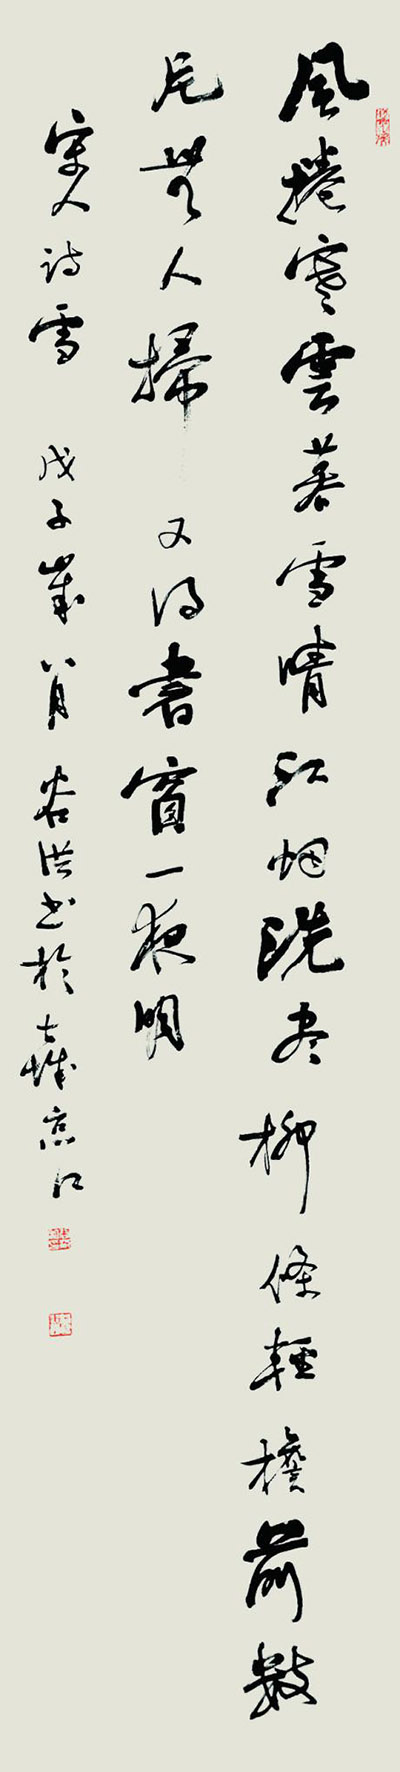 風捲寒雲暮雪晴江烟洗尽柳條輕檐前數
片無人掃又得書窗一夜明
宋人诗雪 戊子歲八月 谷洪书於古城京江